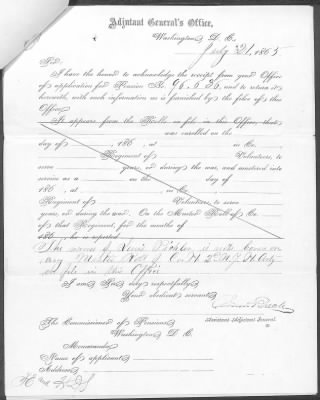 Adjutant General's Office,
Washington D. C.
July 21, 1865
Sir:
I have the honor to acknowledge the receipt from your Office
of application for Pension No. 96.535, and to return it
herewith, with such information as is furnished by the files of this
Office.
It appears from the Rolls on file in this Office, that
was enrolled on the
day of 186 , at in Co.
Regiment of Volunteers, to
serve years, or during the war, and mustered into
service as a on the day of
186 , at , in Co.
Regiment of Volunteers, to serve
years, or during the war. On the Muster Roll of Co.
of that Regiment, for the months of
186 , he is reported
The name of Lewis is not borne on
any Muster Roll of Co. H. 2nd N.J. H. Arty
on file in this Office
I am Sir, very respectfully,
Your obedient servant,
Assistant Adjutant General.
The Commissioner of Pensions,
Washington D. C.
Memoranda:
Name of applicant
Address